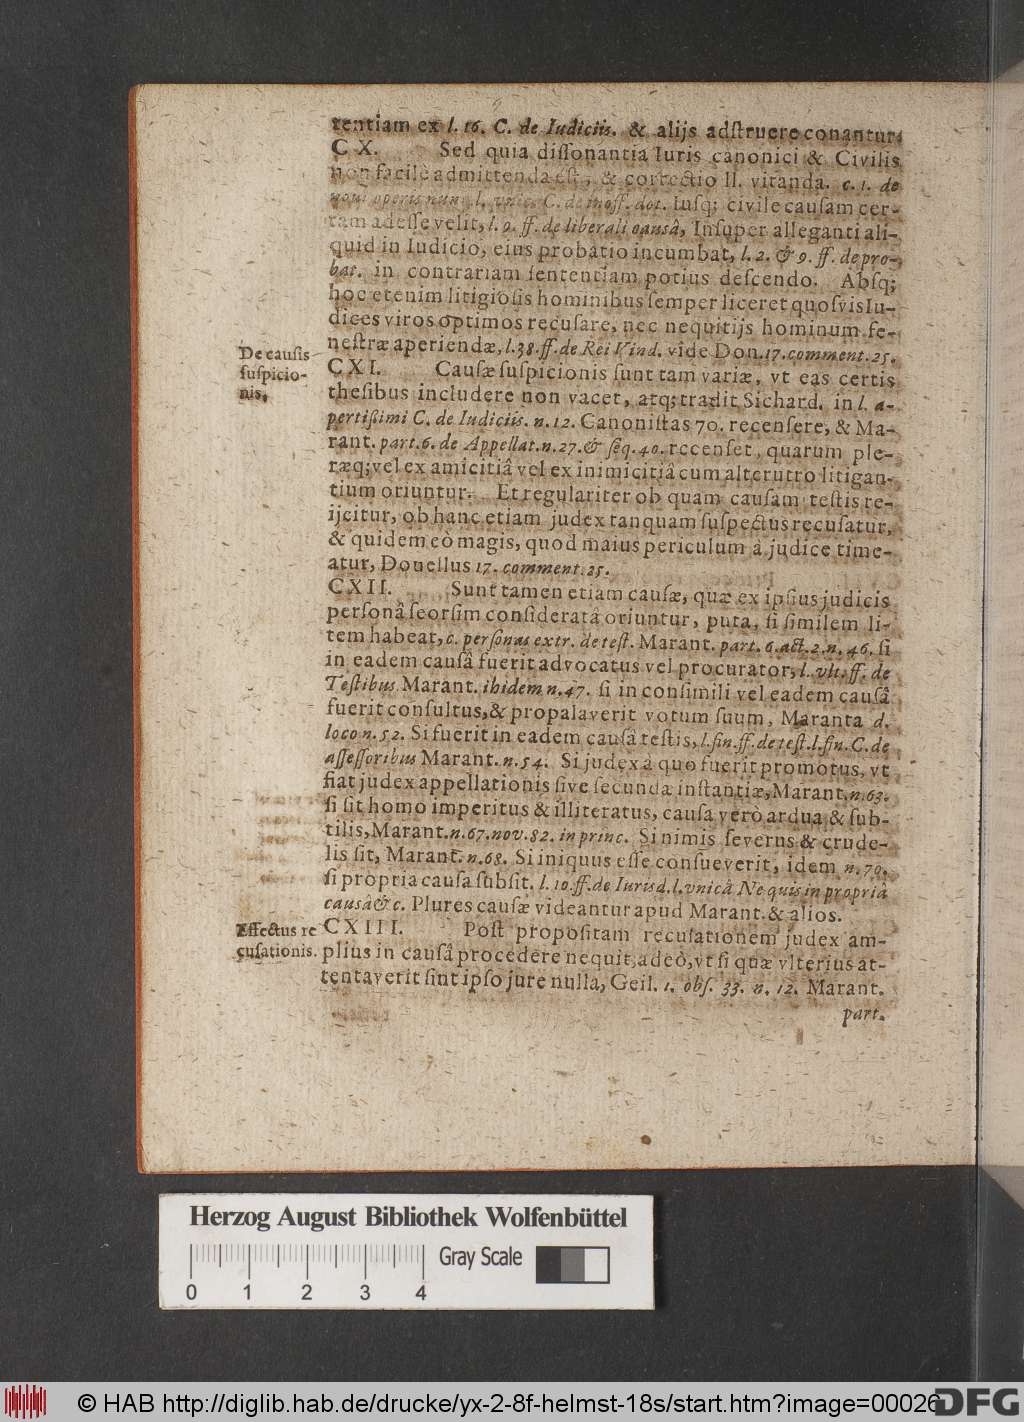 tentiam ex l. 16. C. de Iudiciis. & alijs adſtruere conantur.
CX. Sed quia diſſonantia Iuris canonici & Civilis
non facilè admittenda eſt, & correctio ll. vitanda. c. 1. de
novi operis nun. l. vnic. C. de inoff. dot. Iuſq; civile cauſam cer-
tam adeſſe velit, l. 9. ff. de liberali cauſâ, Inſuper alleganti ali-
quid in Iudicio, eius probatio incumbat, l. 2. & 9. ff. de pro-
bat. in contrariam ſententiam potius deſcendo. Abſq;
hoc etenim litigioſis hominibus ſemper liceret quoſvis Iu-
dices viros optimos recuſare, nec nequitijs hominum fe-
neſtræ aperiendæ, l. 38. ff. de Rei Vind. vide Don. 17. comment. 25.
De cauſis
ſuſpicio-
nis.
CXI. Cauſæ ſuſpicionis ſunt tam variæ, vt eas certis
theſibus includere non vacet, atq; tradit Sichard. in l. a-
pertiſſimi C. de Iudiciis. n. 12. Canoniſtas 70. recenſere, & Ma-
rant. part. 6. de Appellat. n. 27. & ſeq. 40. recenſet, quarum ple-
ræq; vel ex amicitiâ vel ex inimicitiâ cum alterutro litigan-
tium oriuntur. Et regulariter ob quam cauſam teſtis re-
ijcitur, ob hanc etiam judex tanquam ſuſpectus recuſatur,
& quidem eò magis, quod maius periculum à judice time-
atur, Donellus 17. comment. 25.
CXII. Sunt tamen etiam cauſæ, quæ ex ipſius judicis
perſonâ ſeorſim conſideratâ oriuntur, puta, ſi ſimilem li-
tem habeat, c. perſonas extr. de teſt. Marant. part. 6. act. 2. n. 46. ſi
in eadem cauſâ fuerit advocatus vel procurator, l. vlt. ff. de
Teſtibus Marant. ibidem n. 47. ſi in conſimili vel eadem cauſâ
fuerit conſultus, & propalaverit votum ſuum, Maranta d.
loco n. 52. Si fuerit in eadem cauſâ teſtis, l. fin. ff. de teſt. l. fin. C. de
aſſeſſoribus Marant. n. 54. Si judex à quo fuerit promotus, vt
fiat judex appellationis ſive ſecundæ inſtantiæ, Marant. n. 63.
ſi ſit homo imperitus & illiteratus, cauſa verò ardua & ſub-
tilis, Marant. n. 67. nov. 82. in princ. Si nimis ſeverus & crude-
lis ſit, Marant. n. 68. Si iniquus eſſe conſueverit, idem n. 70.
ſi propria cauſa ſubſit. l. 10. ff. de Iurisd. l. vnicâ Ne quis in propriâ
causâ &c. Plures cauſæ videantur apud Marant. & alios.
Effectus re
cuſationis.
CXIII. Poſt propoſitam recuſationem judex am-
plius in cauſâ procedere nequit, adeò, vt ſi quæ vlterius at-
tentaverit ſint ipſo jure nulla, Geil. 1. obſ. 33. n. 12. Marant.
part.
Herzog August Bibliothek Wolfenbüttel
Gray Scale
0 1 2 3 4
© HAB http://diglib.hab.de/drucke/yx-2-8f-helmst-18s/start.htm?image=00026
DFG